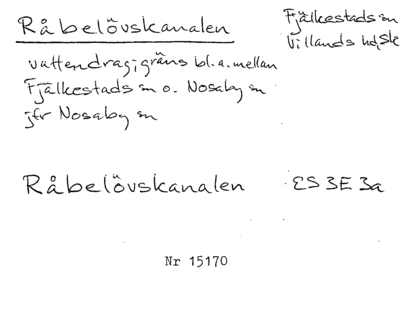 Råbelövskanalen
Fjälkestads sn
Villands hd, Sk
vattendrag i gräns bl. a. mellan
Fjälkestads sn o. Nosaby sn
jfr Nosaby sn
Råbelövskanalen ES 3E 3a
Nr 15170